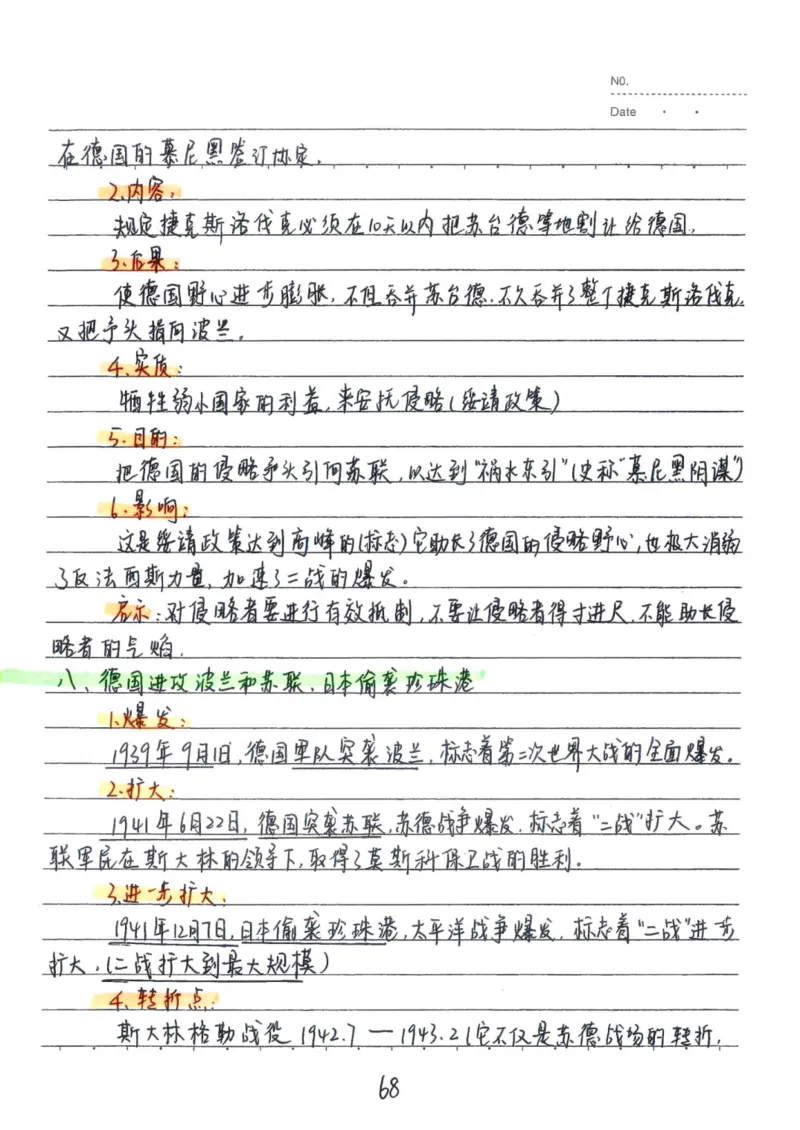 NO.
Date
在德国的慕尼黑签订协定.
2.内容:
规定捷克斯洛伐克必须在10天以内把苏台德等地割让给德国.
3.后果:
使德国野心进步膨胀,不但吞并苏台德.不久吞并了整个捷克斯洛伐克.
又把予头指向波兰。
4.实质:
牺牲弱小国家的利益,来安抚侵略(绥靖政策)
5.目的:
把德国的侵略矛头引向苏联,以达到"祸水东引"(史称"慕尼黑阴谋")
6.影响:
这是绥靖政策达到高峰的(标志)它助长了德国的侵略野心,也极大消弱
了反法西斯力量,加速了二战的爆发。
启示:对侵略者要进行有效抵制,不要让侵略者得寸进尺.不能助长侵
略者的气焰.
八、德国进攻波兰和苏联、日本偷袭珍珠港
1.爆发:
1939年9月1日,德国军队突袭波兰,标志着第二次世界大战的全面爆发。
2.扩大:
1941年6月22日,德国突袭苏联,苏德战争爆发.标志着"二战"扩大。苏
联军民在斯大林的领导下,取得了莫斯科保卫战的胜利。
3.进一步扩大:
1941年12月7日,日本偷袭珍珠港,太平洋战争爆发.标志着"二战"进步
扩大.(二战扩大到最大规模)
4.转折点:
斯大林格勒战役1942.7—1943.2(它不仅是苏德战场的转折,
68